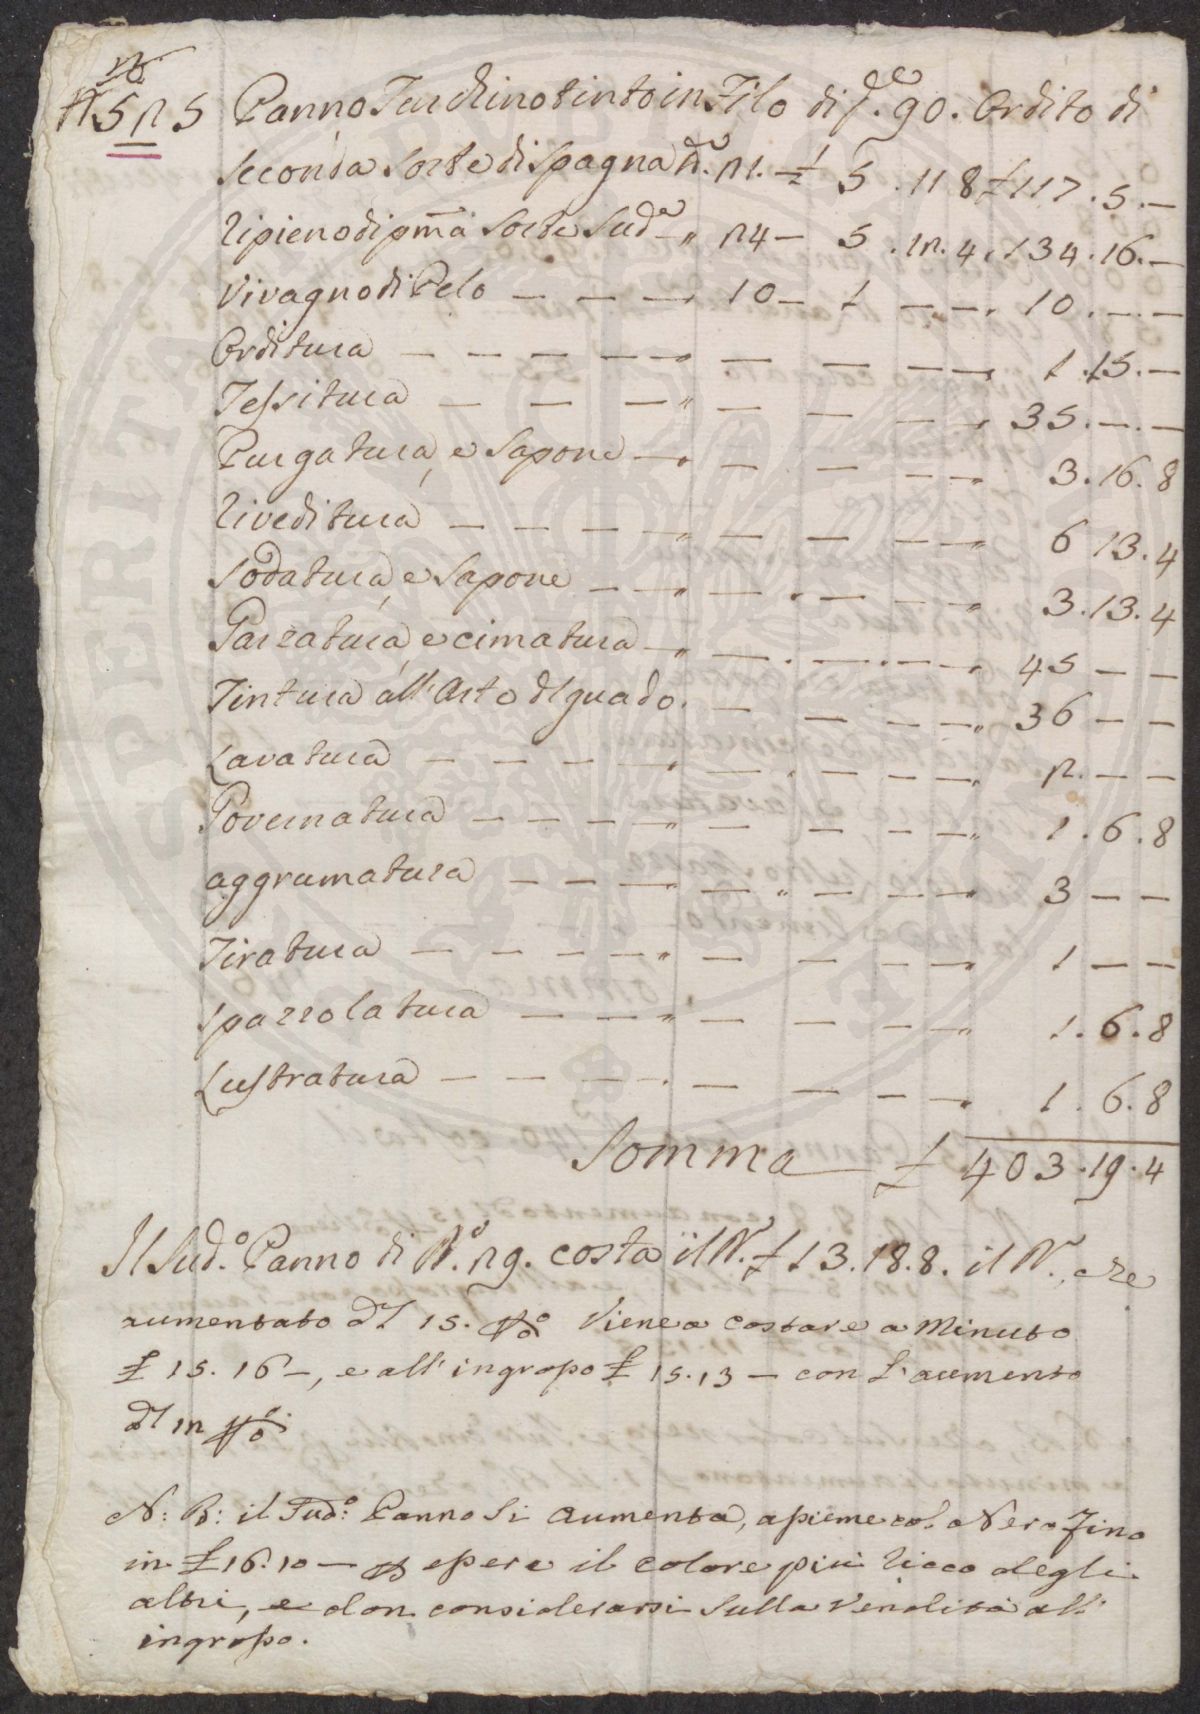 Panno Turchino tinto in Filo di f.e 90. Ordito di
Seconda Sorte di Spagna ₶. 21. £ 5 . 11 8 £ 117 . 5 . —
Ripieno di pma Sorte Sud.e „ 24 — 5 . 12 . 4 . 134 . 16 . —
Vivagno di Pelo — — — 10 — 1 — — . 10 . — . —
Orditura — — — — — — — — — 1 . 15 . —
Tessitura — — — „ — — — — 35 . — . —
Purgatura, e Sapone — — — — — 3 . 16 . 8
Riveditura — — — — „ — — — — „ 6 13 . 4
Sodatura, e Sapone — — „ — — — — „ 3 . 13 . 4
Garzatura, e cimatura — „ — . — . — . — „ 45 — —
Tintura all' Arto di guado . — — — — „ 36 — —
Lavatura — — — — „ — — — — „ 2 . — —
Governatura — — — — „ — — — — „ 1 . 6 . 8
aggrumatura — — — — „ — — — „ 3 — —
Tiratura — — — — „ — — — — „ 1 — —
Spazzolatura — — — „ — — — — „ 1 . 6 . 8
Lustratura — — — — . — — — — . 1 . 6 . 8
Somma — £ 403 . 19 . 4
Il Sud.o Panno di B.a 29. costa il B. £ 13 . 18 . 8 . il B., e re
aumentato dl 15. p%o Viene a costare a Minuto
£ 15 . 16 —, e all' ingrosso £ 15 . 13 — con l'aumento
dl 12 p%o
N: B: il Sud:o Panno Si aumenta, a pieme col. o Nero Fino
in £ 16 . 10 — p essere il colore più ricco degli
altri, e don considerarsi Sulla Vendita all'
ingrosso.